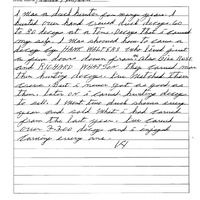 I was a duck hunter for many years. I
hunted over hand carved duck decoys 60
to 80 decoys at a time. Decoys that I carved
my self. I was showed how to carve a
decoy by HANK WALTERS who lived just
a few doors down from
and RICHARD WHATSON They carved more
then hunting decoys. I've watched them
carve. But I never got as good as
them, later on I carved hunting decoys
to sell. I went to duck shows every
year and sold what I had carved
from the last year. I've carved
over decoys and I enjoyed
carving every one.